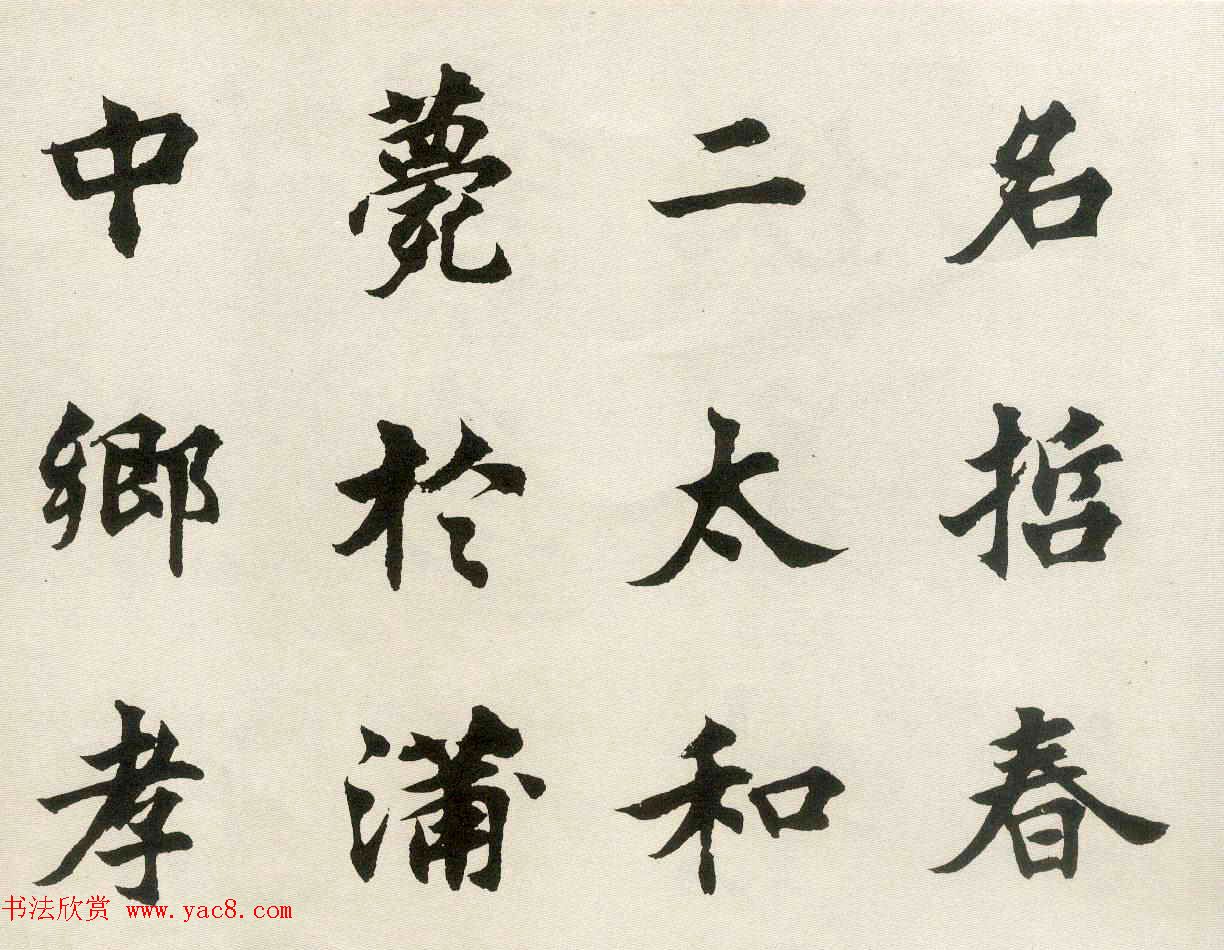 名哲春
二太和
薨於蒲
中鄉孝
书法欣赏 www.yac8.com